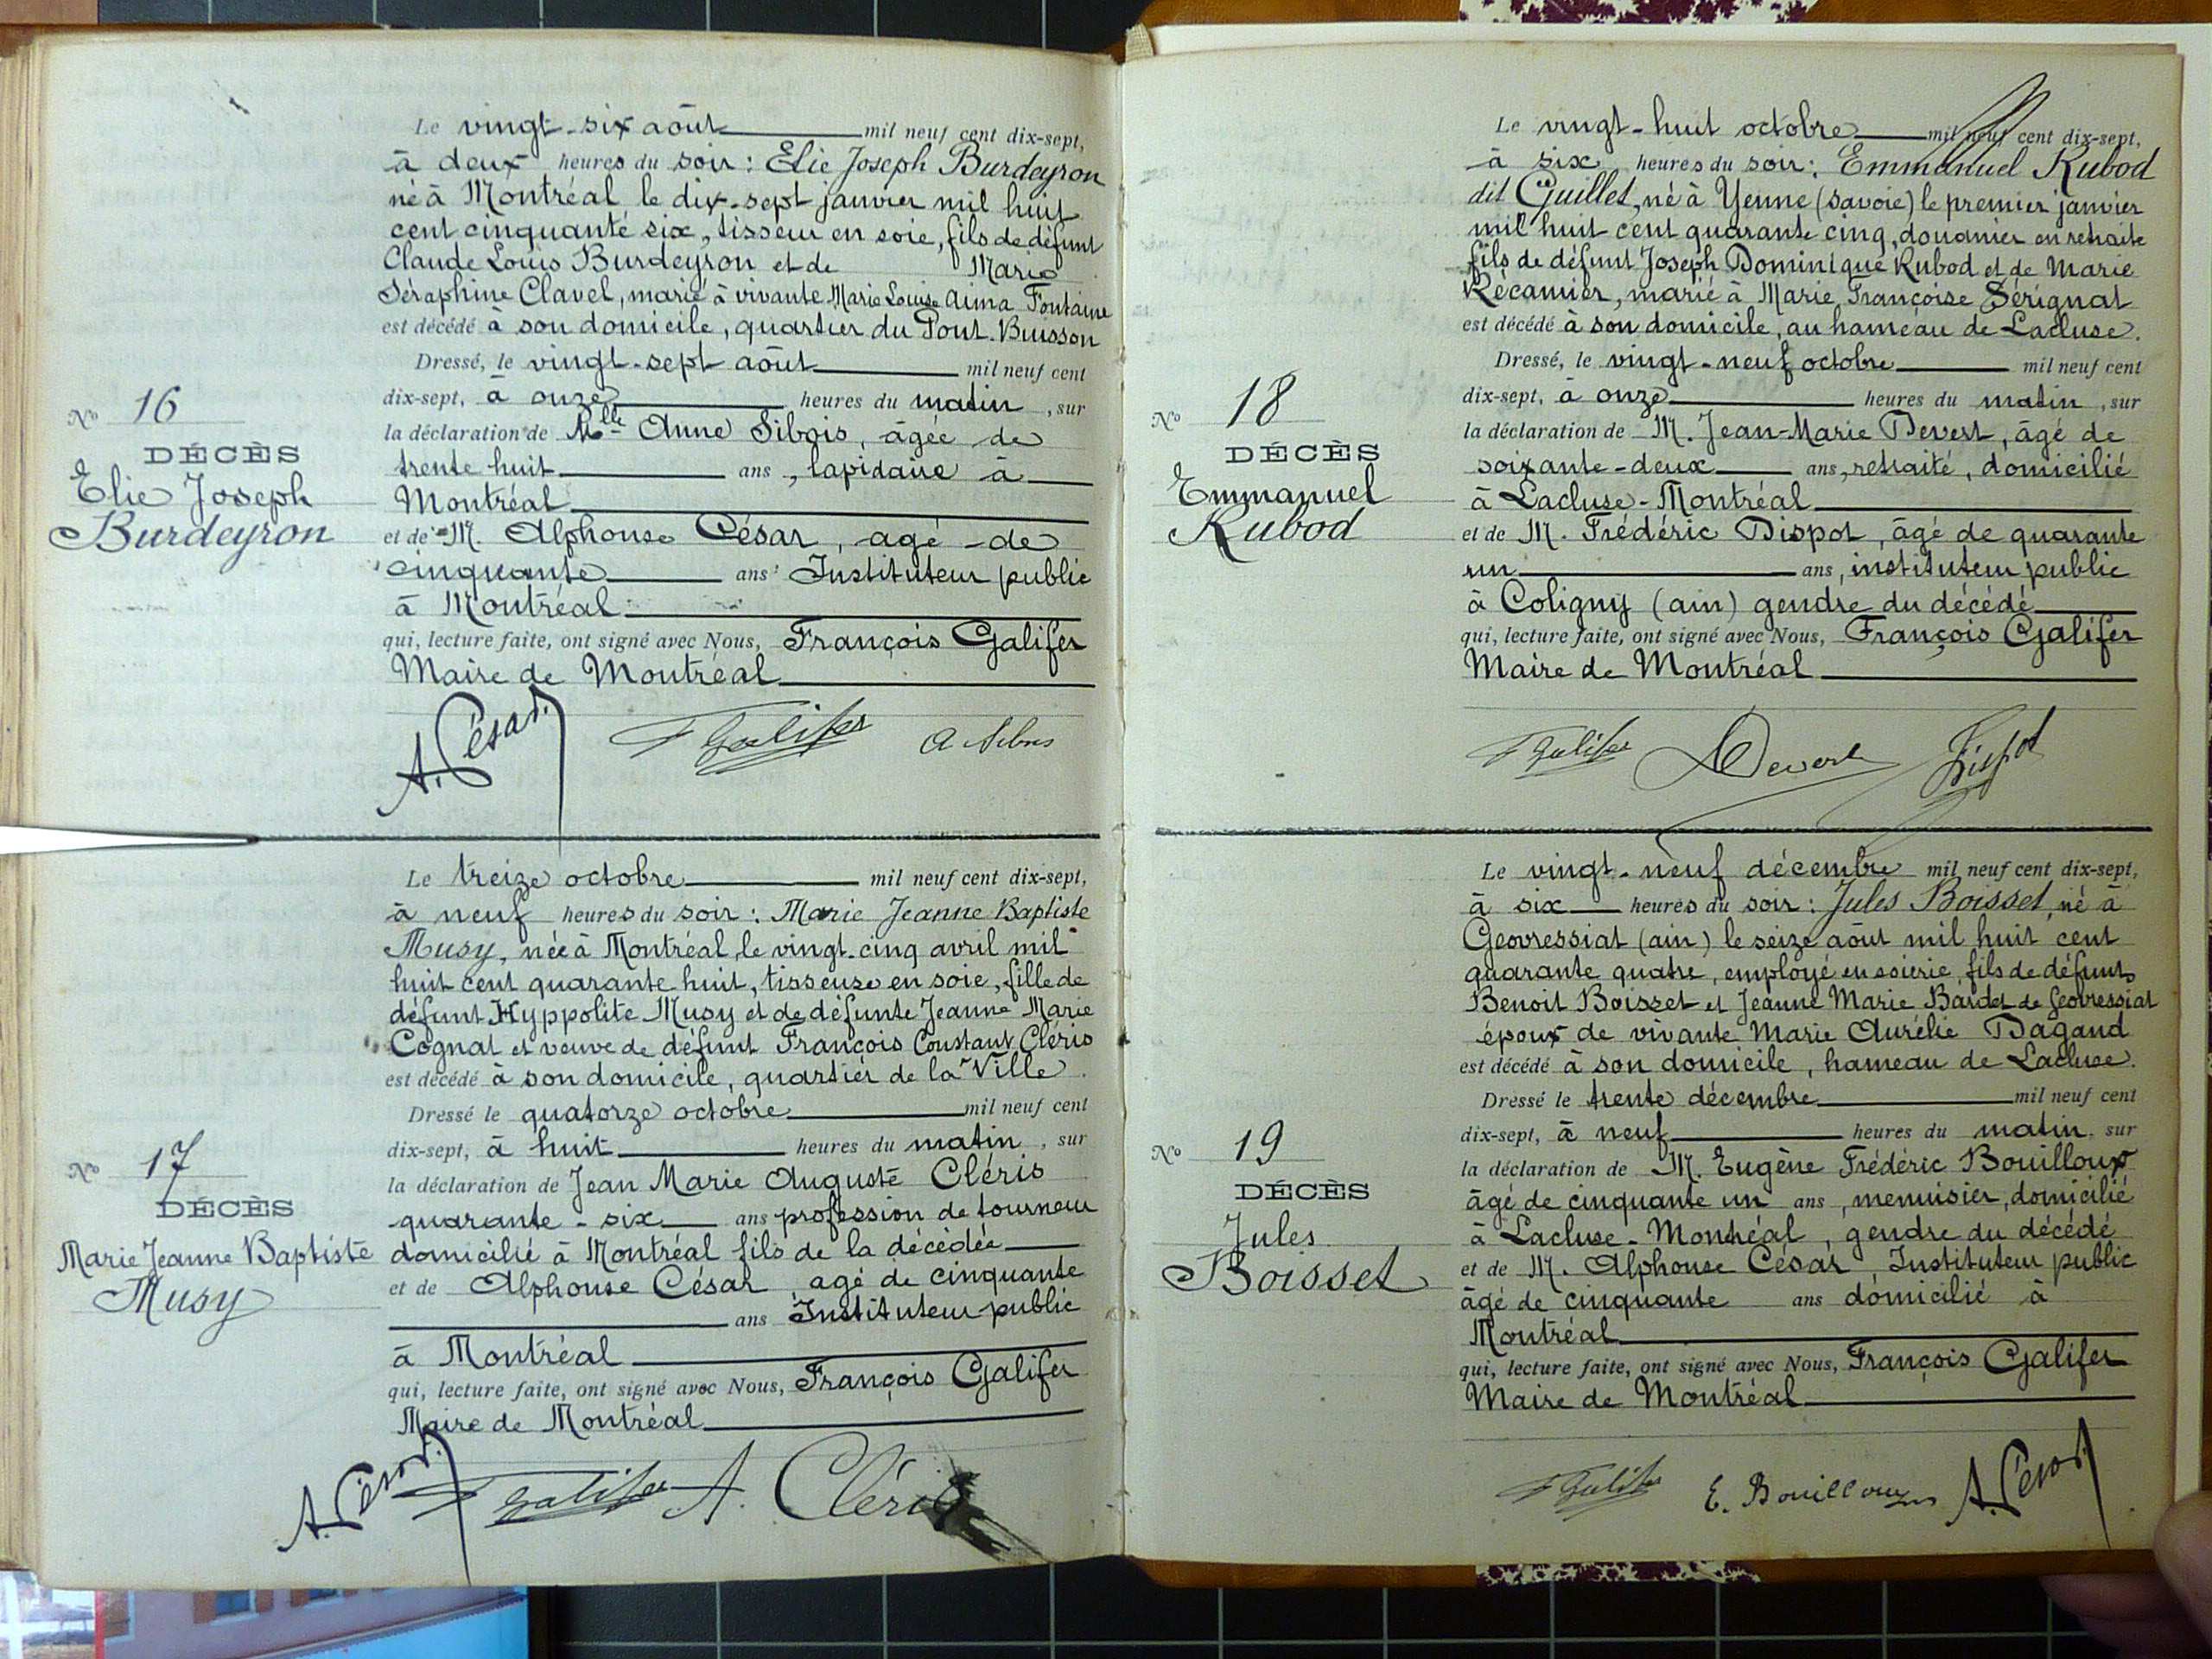 Le vingt-six août mil neuf cent dix-sept,
à deux heures du soir : Elie Joseph Burdeyron
né à Montréal le dix-sept janvier mil huit
cent cinquante six, tisseur en soie, fils de défunt
Claude Louis Burdeyron et de Marie
Séraphine Clavel, marié à vivante Marie Louise Aima Fontaine
est décédé à son domicile, quartier du Pont-Buisson
Dressé, le vingt-sept août mil neuf cent
dix-sept, à onze heures du matin, sur
la déclaration de Mlle Anne Sibois, âgée de
trente huit ans, lapidaire à
Montréal
et de M. Alphonse César, agé de
cinquante ans Instituteur public
à Montréal
qui, lecture faite, ont signé avec Nous, François Galifer
Maire de Montréal
A. César F Galifer A Sibois
No 16
DÉCÈS
Elie Joseph
Burdeyron
Le treize octobre mil neuf cent dix-sept,
à neuf heures du soir : Marie Jeanne Baptiste
Musy, née à Montréal, le vingt-cinq avril mil
huit cent quarante huit, tisseuse en soie, fille de
défunt Hyppolite Musy et de défunte Jeanne Marie
Cognat et veuve de défunt François Constant Cléris
est décédé à son domicile, quartier de la Ville.
Dressé le quatorze octobre mil neuf cent
dix-sept, à huit heures du matin, sur
la déclaration de Jean Marie Auguste Cléris
quarante-six ans profession de tourneur
domicilié à Montréal fils de la décédée
et de Alphonse César agé de cinquante
ans Instituteur public
à Montréal
qui, lecture faite, ont signé avec Nous, François Galifer
Maire de Montréal
A. César F Galifer A. Cléris
No 17
DÉCÈS
Marie Jeanne Baptiste
Musy
Le vingt-huit octobre mil neuf cent dix-sept,
à six heures du soir : Emmanuel Rubod
dit Guillet, né à Yenne (Savoie) le premier janvier
mil huit cent quarante cinq, douanier en retraite
fils de défunt Joseph Dominique Rubod et de Marie
Récamier, marié à Marie Françoise Sérignat
est décédé à son domicile, au hameau de Lacluse.
Dressé, le vingt-neuf octobre mil neuf cent
dix-sept, à onze heures du matin, sur
la déclaration de M. Jean-Marie Devert, âgé de
soixante-deux ans, retraité, domicilié
à Lacluse-Montréal
et de M. Frédéric Dispot, âgé de quarante
un ans, instituteur public
à Coligny (ain) gendre du décédé
qui, lecture faite, ont signé avec Nous, François Galifer
Maire de Montréal
F Galifer Devert Dispot
No 18
DÉCÈS
Emmanuel
Rubod
Le vingt-neuf décembre mil neuf cent dix-sept,
à six heures du soir : Jules Boisset, né à
Géovressiat (ain) le seize août mil huit cent
quarante quatre, employé en soierie, fils de défunts
Benoit Boisset et Jeanne Marie Bardet de Géovressiat
époux de vivante Marie Aurélie Dagand
est décédé à son domicile, hameau de Lacluse.
Dressé le trente décembre mil neuf cent
dix-sept, à neuf heures du matin, sur
la déclaration de M. Eugène Frédéric Bouilloux
âgé de cinquante un ans, menuisier, domicilié
à Lacluse-Montréal, gendre du décédé
et de M. Alphonse César Instituteur public
âgé de cinquante ans domicilié à
Montréal
qui, lecture faite, ont signé avec Nous, François Galifer
Maire de Montréal
F Galifer E. Bouilloux A. César
No 19
DÉCÈS
Jules
Boisset